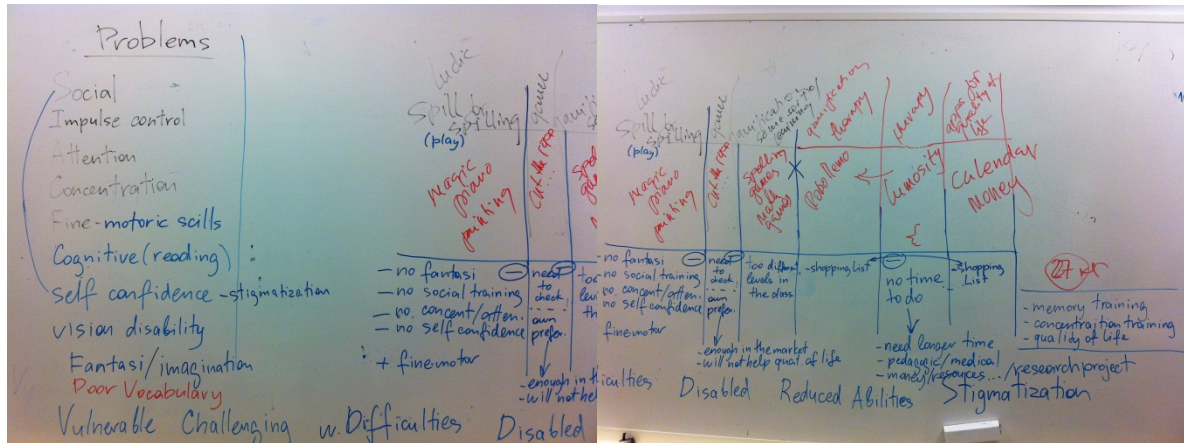 Problems
Social
Impulse control
Attention
Concentration
Fine-motoric scills
Cognitive (reading)
self confidence - stigmatization
vision disability
Fantasi/imagination
Poor Vocabulary
Vulnerable Challenging w. Difficulties Disabled
Ludic
Spill for
spilling
(play)
game
magic
piano
painting
cut the rope
...
- no fantasi
- no social training
- no. concent/atten.
- no self confidence
+ fine-motor
need
to
check
own
prefer.
too
- enough in th
- will not help
Ludic
Spill
spilling
(play)
game
some sort of
learning
gamification
therapy
therapy
apps for
quality of
life
magic
piano
painting
cut the rope
...
spelling
games
math
games
RoboMemo
lumosity
calendar
money
no fantasi
no social training
no concent/atten.
no self confidence
fine-motor
need
to
check
own
prefer.
too different
levels in
the class
- shopping list
no time
to do
- shopping
list
27
- memory training
- concentraition training
- quality of life
- enough in the market
- will not help qual. of life
- need longer time
- pedagogic/medical
- money/resources.../research project
iculties Disabled Reduced Abilities Stigmatization